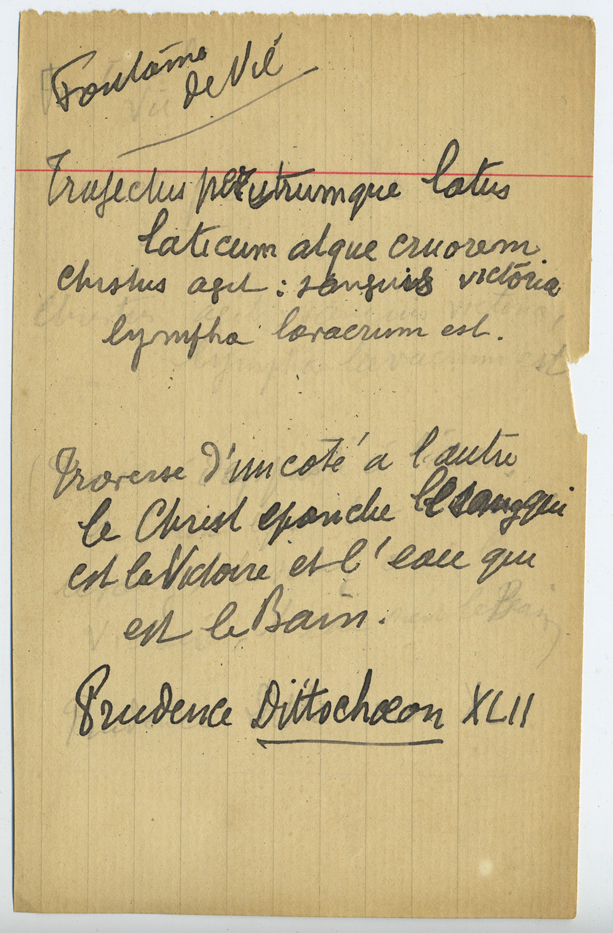 Fontaine
de Vie
Trajectus per utrumque latus
laticum atque cruorem
Christus agit : sanguis victoria
lympha lavacrum est.
Traverse d'un coté a l'autre
le Christ epanche le sang qui
est la Victoire et l'eau qui
est le Bain.
Prudence Dittochaeon XLII